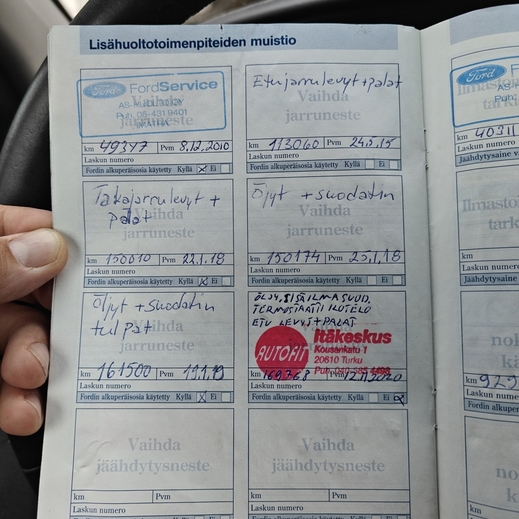 Lisähuoltotoimenpiteiden muistio
Ford FordService
Vaihda
jarruneste
km 49347 Pvm 8.12.2010
Laskun numero
Fordin alkuperäisosia käytetty Kyllä X Ei
Etujarrulevyt + palat
Vaihda
jarruneste
km 113060 Pvm 24.5.15
Laskun numero
Fordin alkuperäisosia käytetty Kyllä Ei
Takajarrulevyt +
palat
Vaihda
jarruneste
km 150010 Pvm 22.1.18
Laskun numero
Fordin alkuperäisosia käytetty Kyllä X Ei
Öljyt + suodatin
Vaihda
jarruneste
km 150174 Pvm 25.1.18
Laskun numero
Fordin alkuperäisosia käytetty Kyllä Ei
Öljyt + suodatin
tulpat
Vaihda
jarruneste
km 161500 Pvm
Laskun numero
Fordin alkuperäisosia käytetty Kyllä X Ei
ÖLJY, SISÄILMASUOD.
TERMOSTAATTI KOTELO
ETU LEVYT + PALAT
AUTOFIT
Itäkeskus
Kousankatu 1
20610 Turku
km Pvm
Laskun numero
Fordin alkuperäisosia käytetty Kyllä Ei X
Vaihda
jäähdytysneste
km Pvm
Laskun numero
Vaihda
jäähdytysneste
km Pvm
Laskun numero
Ford
km
Laskun numero
Jäähdytysaine
km
Laskun numero
Fordin alkuperäis
km
Laskun numero
Fordin alkuper
km
Laskun numero